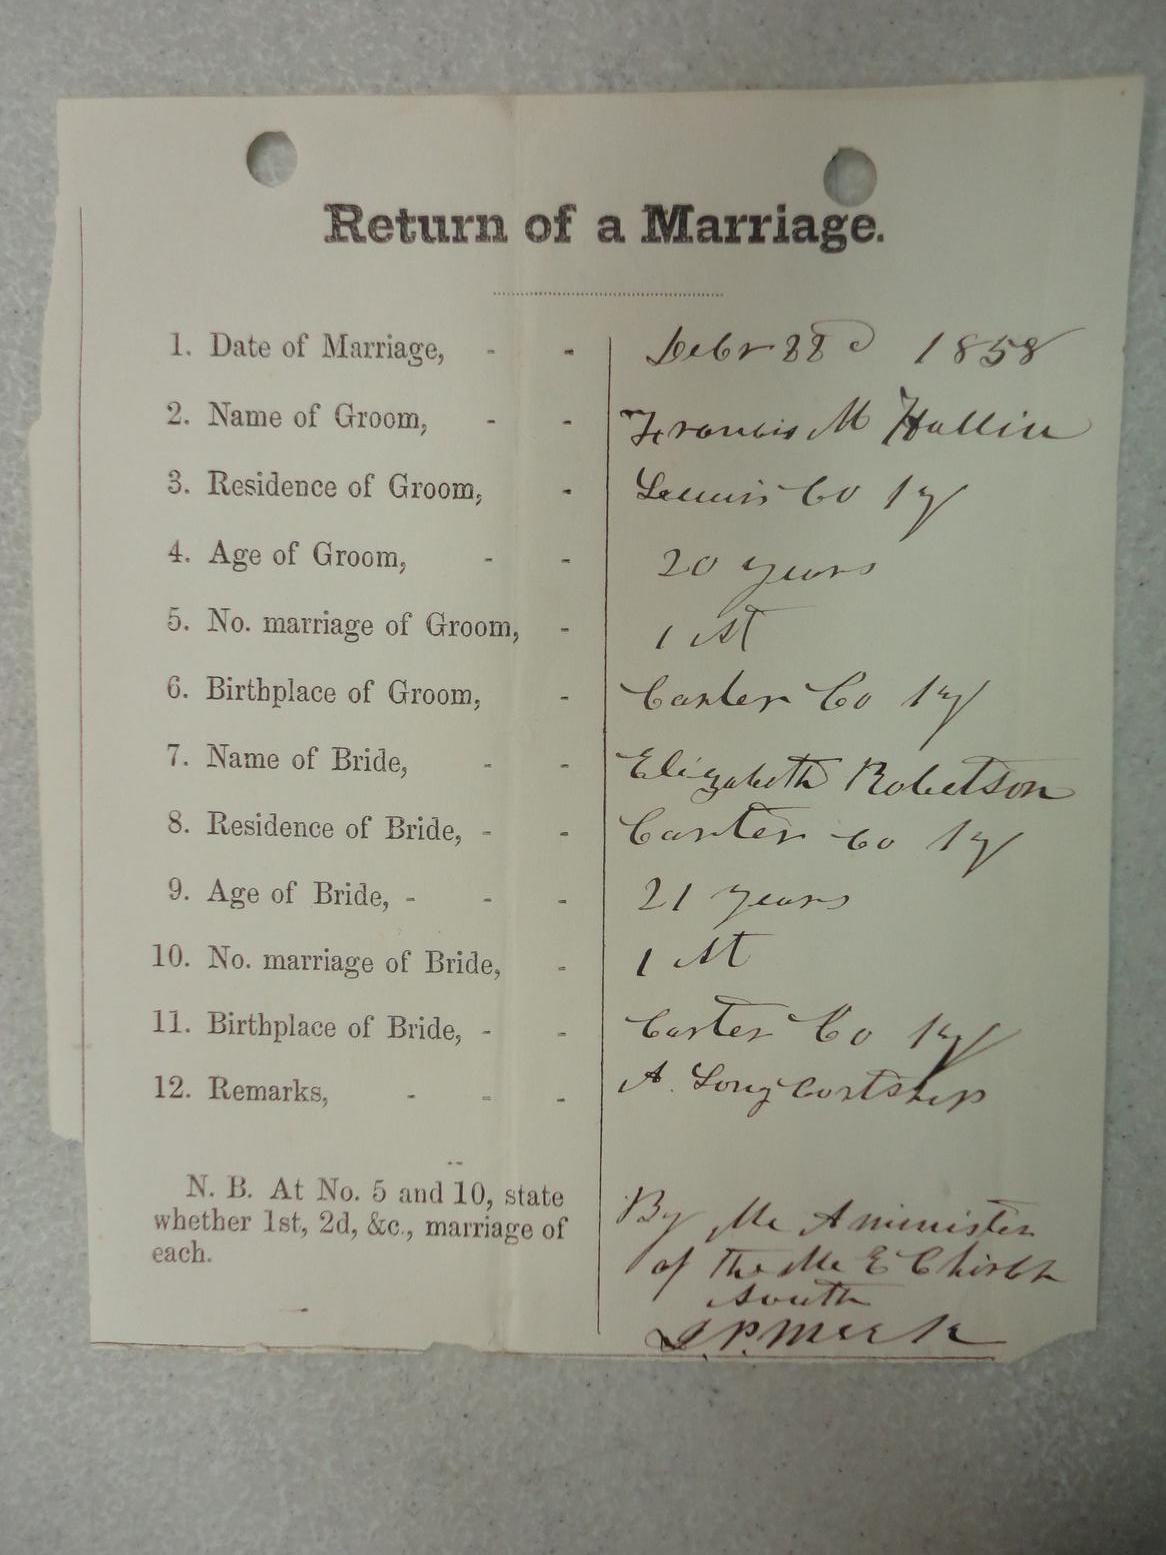 Return of a Marriage.
1. Date of Marriage, - - Debr 22d 1858
2. Name of Groom, - - Francis M
3. Residence of Groom, - Lewis Co Ky
4. Age of Groom, - - 20 years
5. No. marriage of Groom, - 1 st
6. Birthplace of Groom, - Carter Co Ky
7. Name of Bride, - - Elizabeth Robertson
8. Residence of Bride, - - Carter Co Ky
9. Age of Bride, - - - 21 years
10. No. marriage of Bride, - 1 st
11. Birthplace of Bride, - - Carter Co Ky
12. Remarks, - - - A. Long Cortship
N. B. At No. 5 and 10, state
whether 1st, 2d, &c., marriage of
each.
By Me A minister
of the M E
South
P. Meek